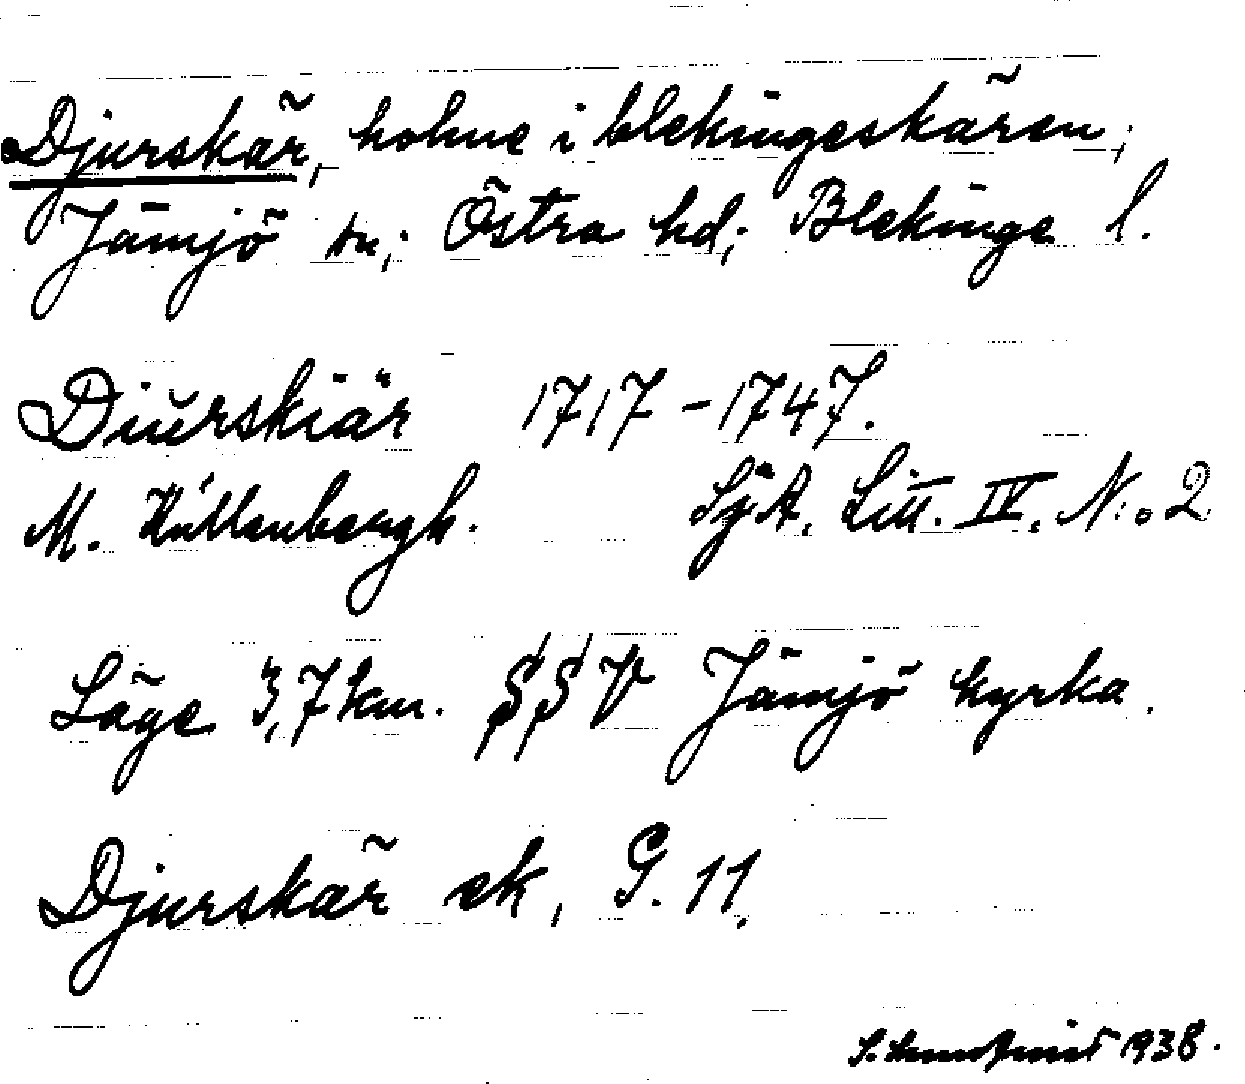 Djurskär, holme i blekingeskären,
Jämjö sn; Östra hd; Blekinge l.
Diurskiär 1717-1747.
M. Hällenbergh. SjA. Litt. IV. N:o 2
Läge 3,7 km. SSV Jämjö kyrka.
Djurskär ek, G. 11.
1938.